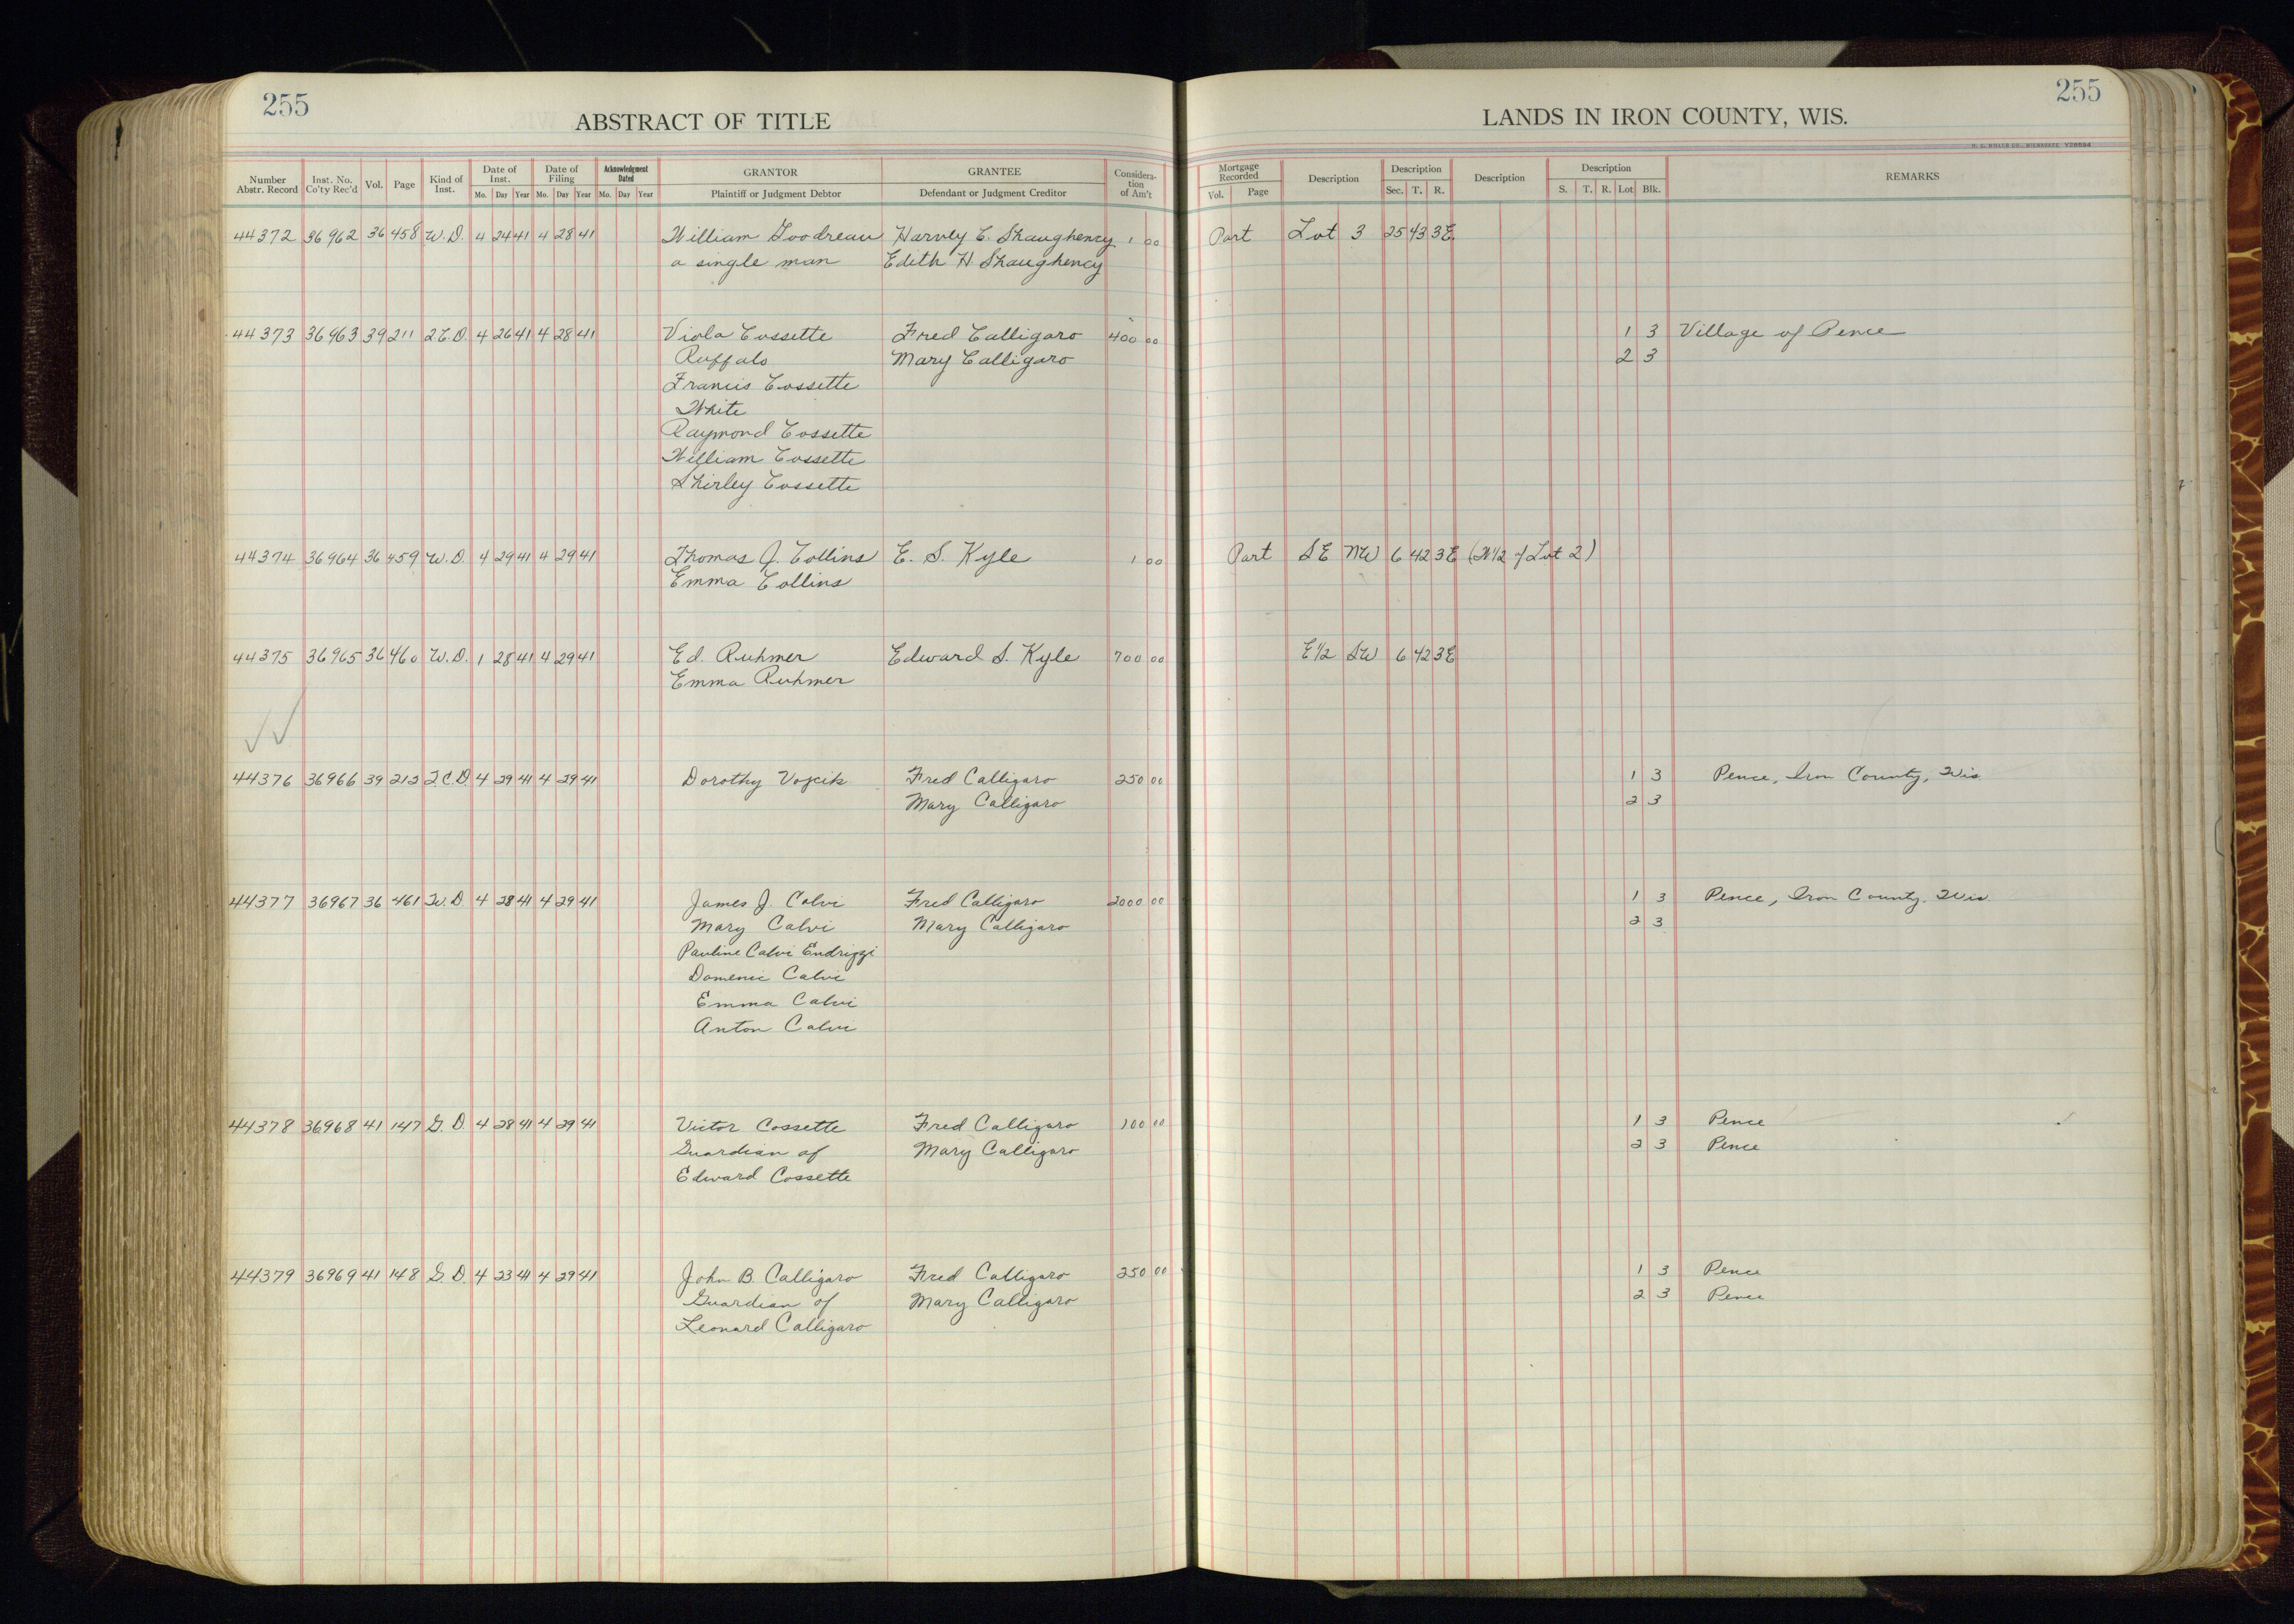 255
ABSTRACT OF TITLE
LANDS IN IRON COUNTY, WIS.
255
H. C. MILLER CO., MILWAUKEE Y28594
Number Abstr. Record Inst. No. Co'ty Rec'd Vol. Page Kind of Inst. Date of Inst. Mo. Day Year Date of Filing Mo. Day Year Acknowledgment Dated Mo. Day Year GRANTOR Plaintiff or Judgment Debtor GRANTEE Defendant or Judgment Creditor Considera-tion of Am't Mortgage Recorded Vol. Page Description Description Sec. T. R. Description Description S. T. R. Lot Blk. REMARKS
44372 36962 36 458 W.D. 4 24 41 4 28 41 William Goodreau Harvey E. Shaughency 1 00 Part Lot 3 25 43 3E
a single man Edith H Shaughency
44373 36963 39 211 2.C.D. 4 26 41 4 28 41 Viola Cossette Fred Calligaro 400 00 1 3 Village of Pence
Ruffalo Mary Calligaro 2 3
Francis Cossette
White
Raymond Cossette
William Cossette
Shirley Cossette
44374 36964 36 459 W.D. 4 29 41 4 29 41 Thomas J. Collins E. S. Kyle 1 00 Part SE NW 6 42 3E (W1/2 of Lot 2)
Emma Collins
44375 36965 36 460 W.D. 1 28 41 4 29 41 Ed. Ruhmer Edward S. Kyle 700 00 E1/2 SW 6 42 3E
Emma Ruhmer
44376 36966 39 212 2.C.D 4 29 41 4 29 41 Dorothy Vojcik Fred Calligaro 250 00 1 3 Pence, Iron County, Wis
Mary Calligaro 2 3
44377 36967 36 461 W.D 4 28 41 4 29 41 James J. Calvi Fred Calligaro 2000 00 1 3 Pence, Iron County. Wis.
Mary Calvi Mary Calligaro 2 3
Pauline Calvi Endrizzi
Domenic Calvi
Emma Calvi
Anton Calvi
44378 36968 41 147 G.D. 4 28 41 4 29 41 Victor Cossette Fred Calligaro 100 00 1 3 Pence
Guardian of Mary Calligaro 2 3 Pence
Edward Cossette
44379 36969 41 148 G.D. 4 23 41 4 29 41 John B. Calligaro Fred Calligaro 250 00 1 3 Pence
Guardian of Mary Calligaro 2 3 Pence
Leonard Calligaro